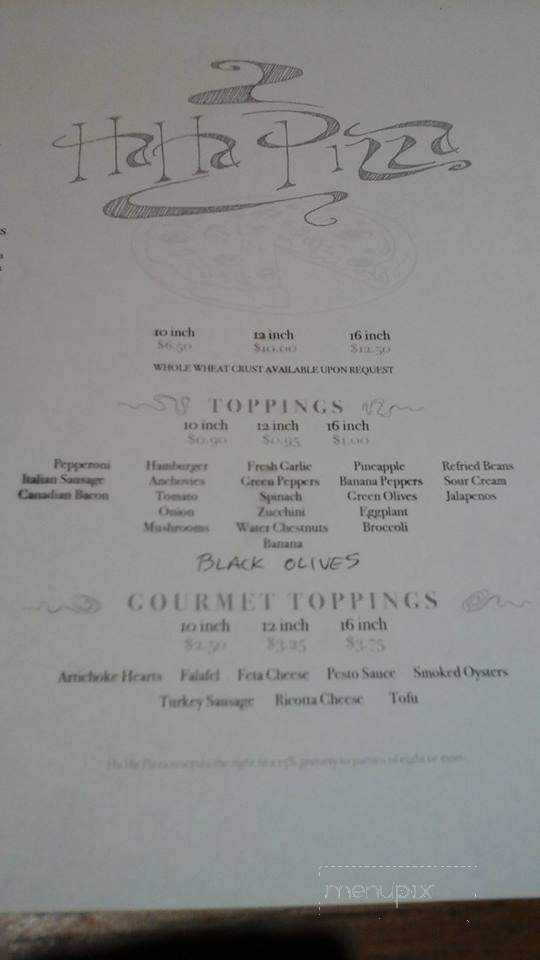 HaHa Pizza
10 inch 12 inch 16 inch
$6.50 $10.00 $12.50
WHOLE WHEAT CRUST AVAILABLE UPON REQUEST
TOPPINGS
10 inch 12 inch 16 inch
$0.90 $0.95 $1.00
Pepperoni Hamburger Fresh Garlic Pineapple Refried Beans
Italian Sausage Anchovies Green Peppers Banana Peppers Sour Cream
Canadian Bacon Tomato Spinach Green Olives Jalapenos
Onion Zucchini Eggplant
Mushrooms Water Chestnuts Broccoli
Banana
BLACK OLIVES
GOURMET TOPPINGS
10 inch 12 inch 16 inch
$2.50 $3.25 $3.75
Artichoke Hearts Falafel Feta Cheese Pesto Sauce Smoked Oysters
Turkey Sausage Ricotta Cheese Tofu
Ha Ha Pizza reserves the right to a 15% gratuity to parties of eight or more
menupix